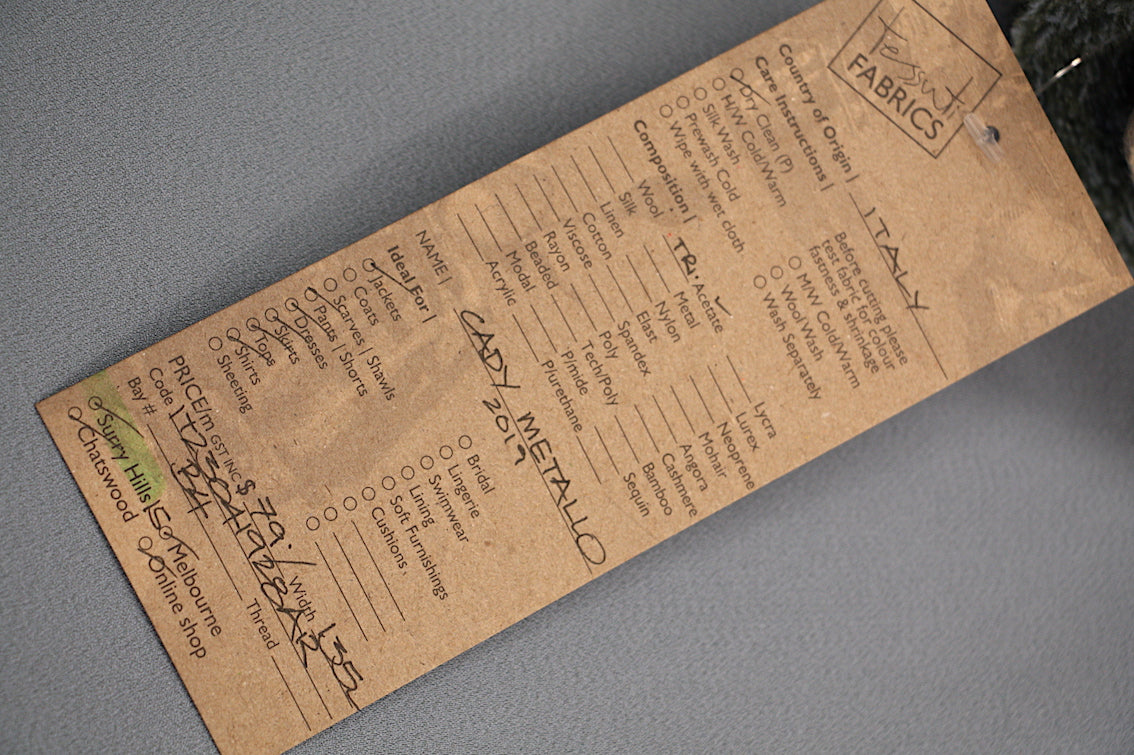 Tessuti
FABRICS
Country of Origin | ITALY
Care Instructions |
Dry Clean (P)
H/W Cold/Warm
Silk Wash
Prewash Cold
Wipe with wet cloth
Before cutting please
test fabric for colour
fastness & shrinkage
M/W Cold/Warm
Wool Wash
Wash Separately
Composition |
Wool TRI. Acetate ✓ Lycra
Silk Metal Lurex
Linen Nylon Neoprene
Cotton Elast Mohair
Viscose Spandex Angora
Rayon Poly Cashmere
Beaded Tech/Poly Bamboo
Modal P/mide Sequin
Acrylic P/urethane
NAME | CADY METALLO
2019
Ideal For |
Jackets Bridal
Coats Lingerie
Scarves | Shawls Swimwear
Pants | Shorts Lining
Dresses Soft Furnishings
Skirts Cushions
Tops
Shirts
Sheeting
PRICE/m GST INC $ 79. Width 135
Code
Bay # Thread
Surry Hills 15 Melbourne
Chatswood Online shop